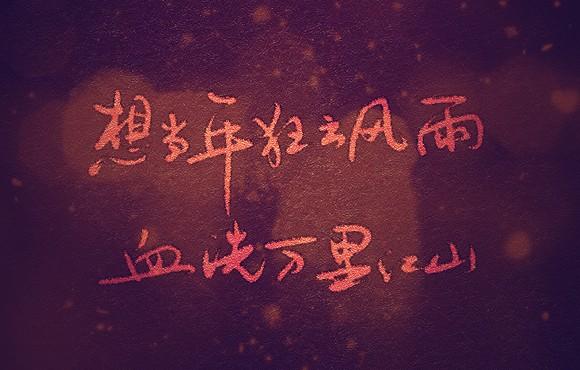 想当年狂云风雨
血洗万里江山